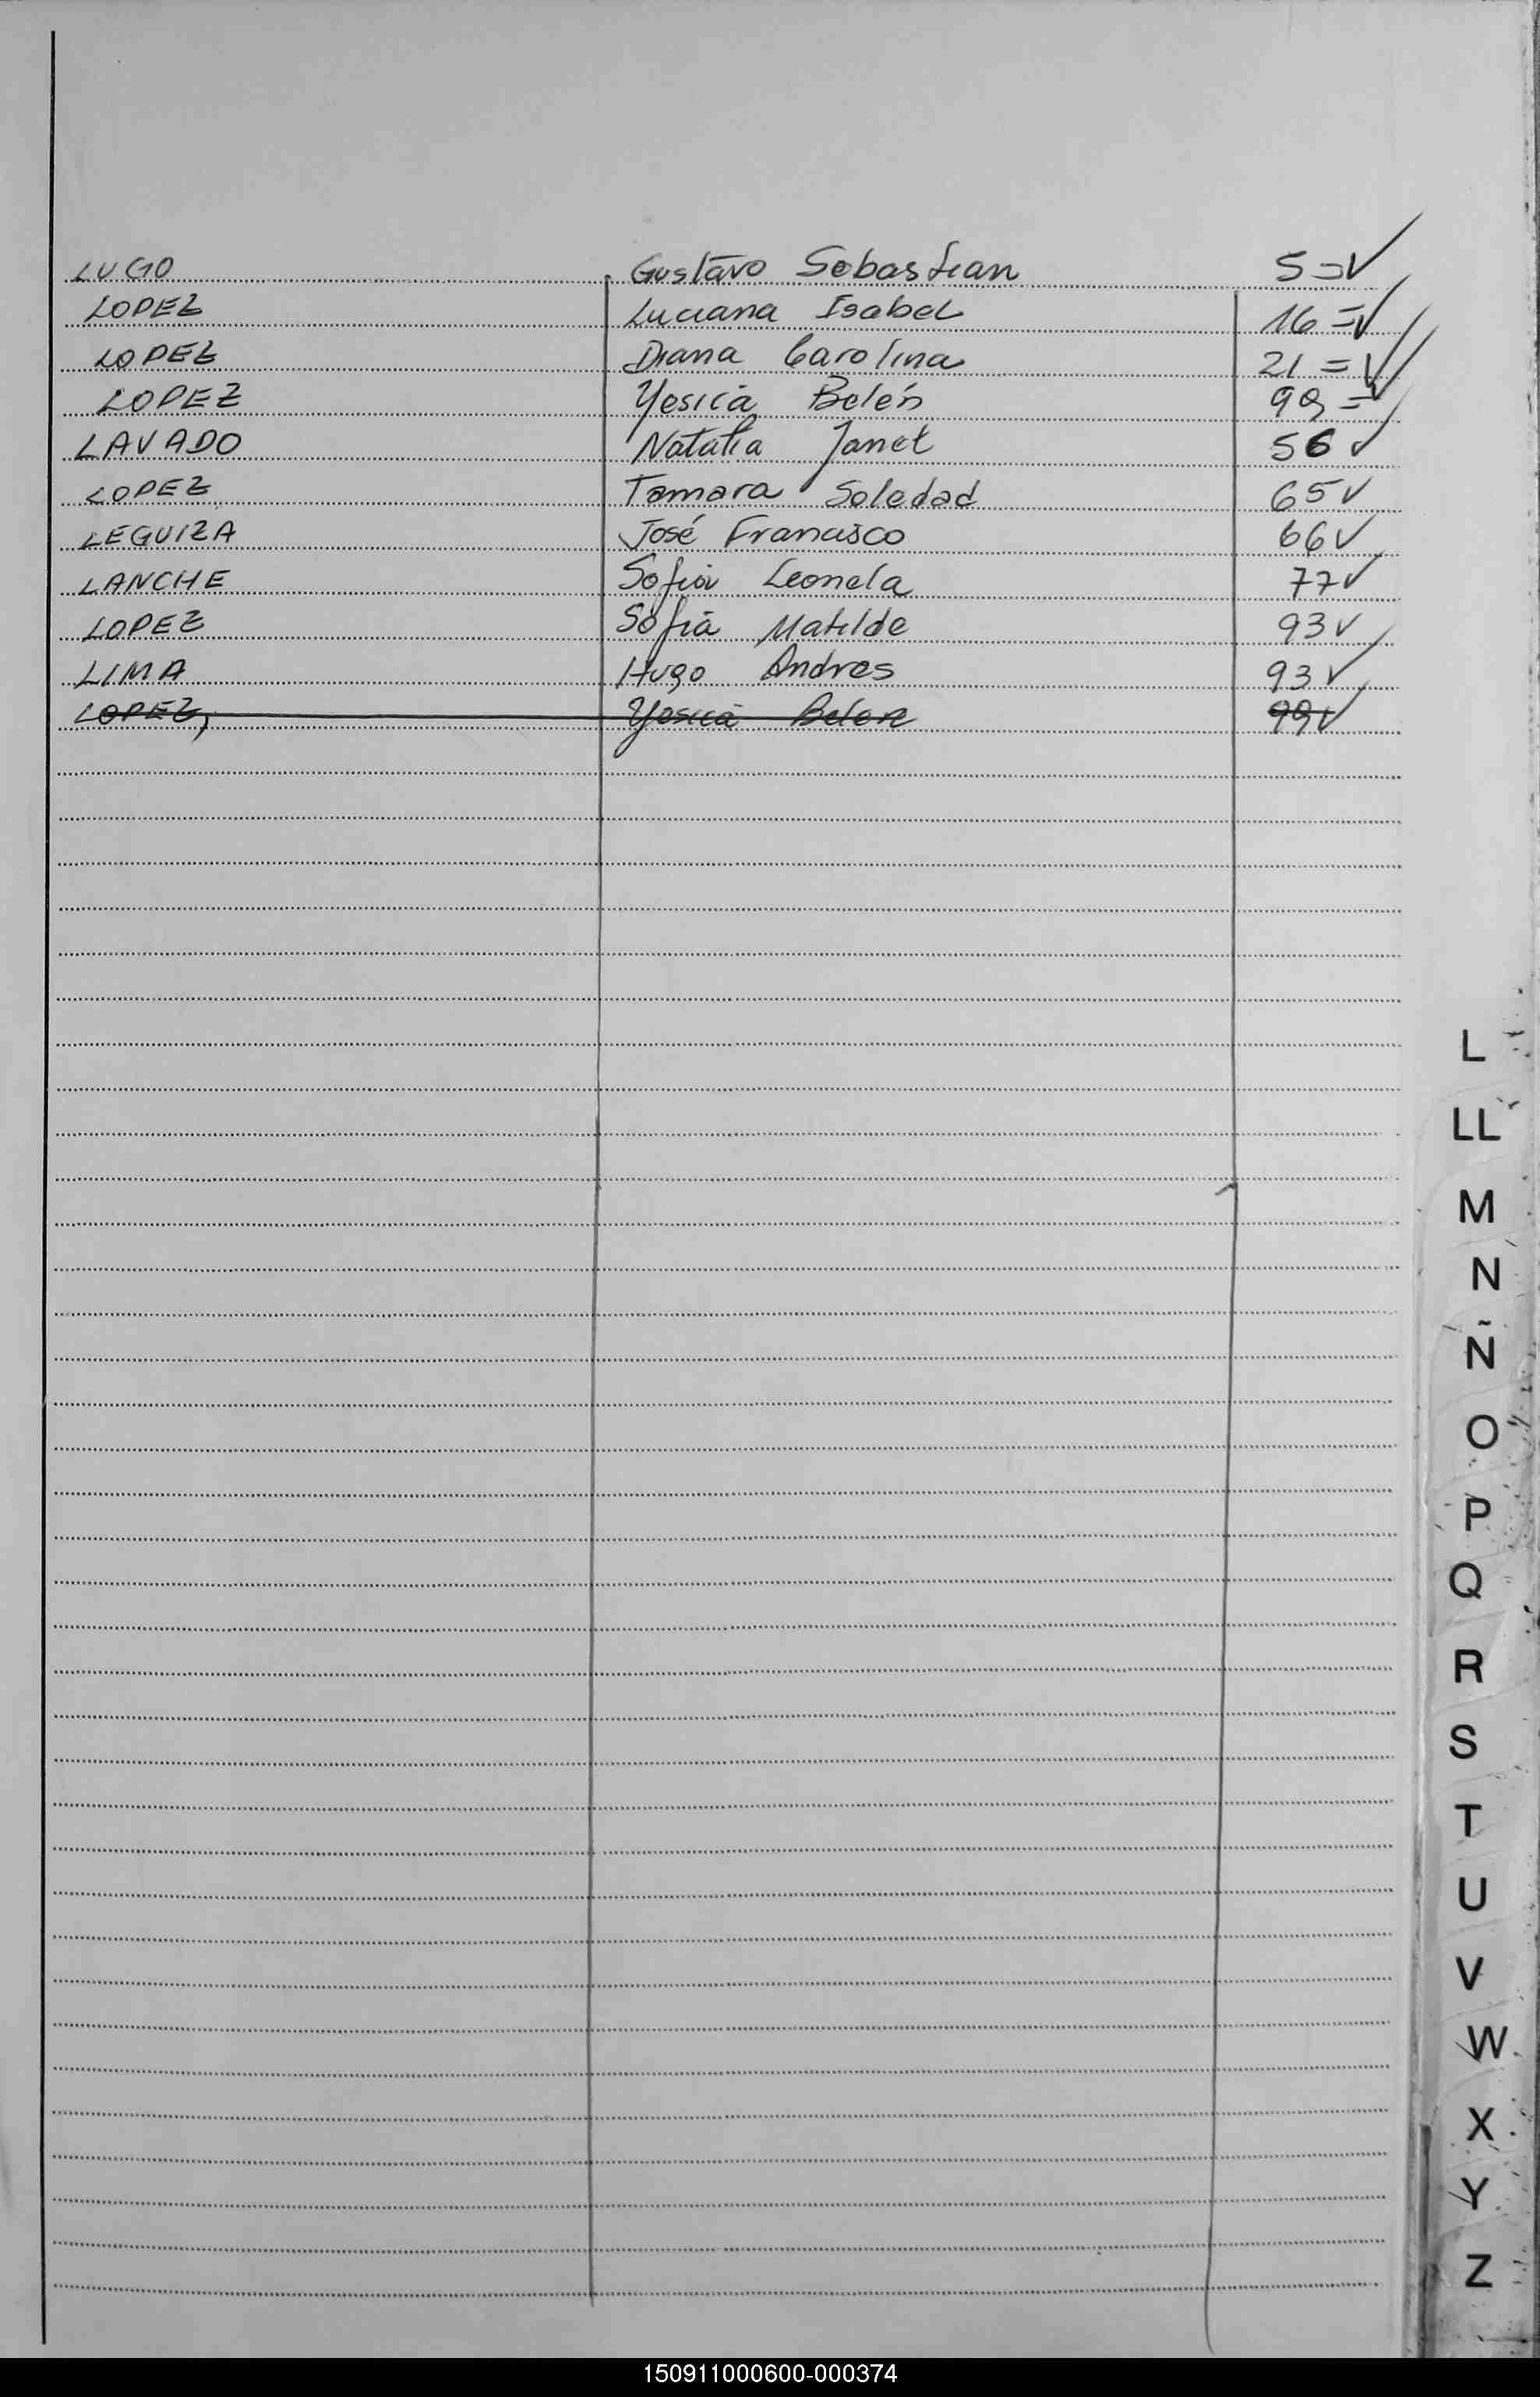 LUGO Gustavo Sebastian 5=✓
LOPEZ Luciana Isabel 16=✓
LOPEZ Diana Carolina 21=✓
LOPEZ Yesica Belén 99=✓
LAVADO Natalia Janet 56✓
LOPEZ Tamara Soledad 65✓
LEGUIZA José Francisco 66✓
LANCHE Sofia Leonela 77✓
LOPEZ Sofia Matilde 93✓
LIMA Hugo Andres 93✓
LOPEZ, Yesica Belen 99✓
L
LL
M
N
Ñ
O
P
Q
R
S
T
U
V
W
X
Y
Z
150911000600-000374